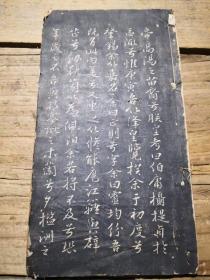 帝高陽之苗裔兮朕皇考曰伯庸攝提貞於
孟陬兮惟庚寅吾以降皇覽揆余于初度兮
肇錫余以嘉名名余曰正則兮字余曰靈均紛吾
既有此內美兮又重之以脩能扈江離與辟
芷兮紉秋蘭以為佩汩余若將不及兮恐
年歲之不吾與朝搴阰之木蘭兮夕攬洲之